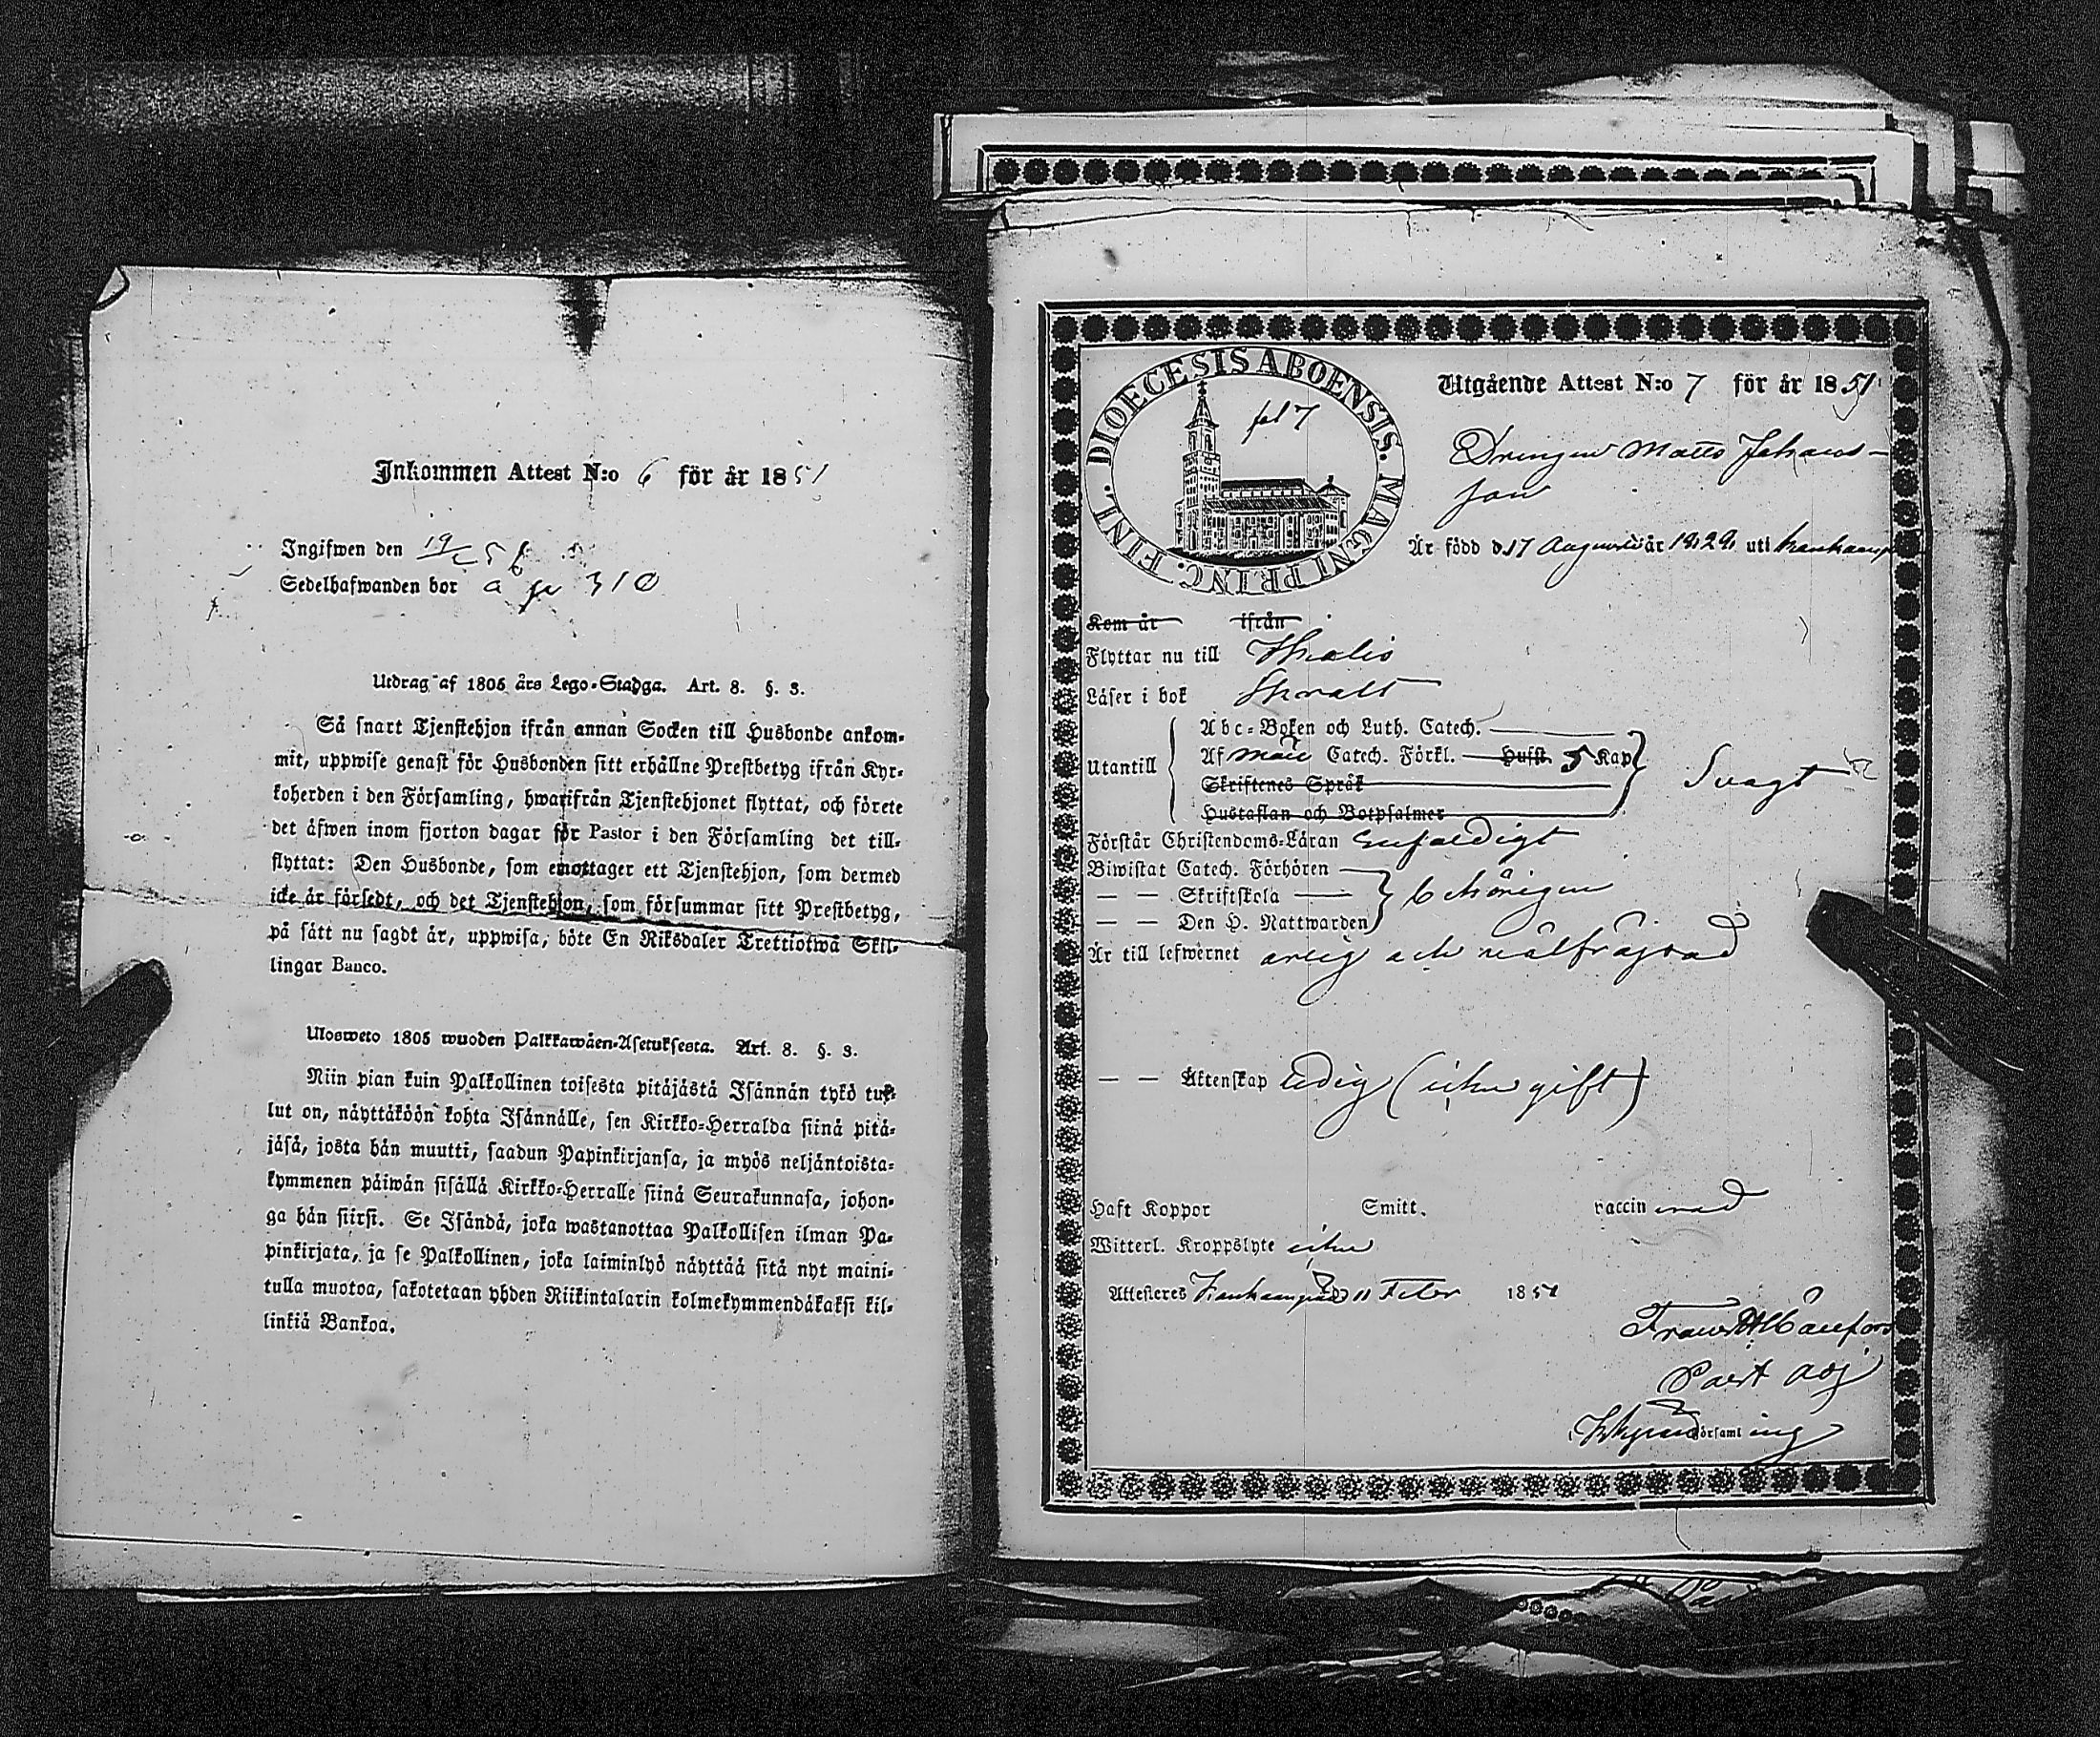 Inkommen Attest N:o 6 för år 1851
Ingifwen den 19/2 56
Sedelhafwanden bor a p 310
Utdrag af 1805 års Lego-Stadga. Art. 8. §. 3.
Så snart Tjenstehjon ifrån annan Socken till Husbonde ankom-
mit, uppwise genast för Husbonden sitt erhållne Prestbetyg ifrån Kyr-
koherden i den Församling, hwarifrån Tjenstehjonet flyttat, och förete
det äfwen inom fjorton dagar för Pastor i den Församling det till-
flyttat: Den Husbonde, som emottager ett Tjenstehjon, som dermed
icke är försedt, och det Tjenstehjon, som försummar sitt Prestbetyg,
på sätt nu sagdt är, uppwisa, böte En Riksdaler Trettiotwå Skil-
lingar Banco.
Ulosweto 1805 wuoden Palkkawäen-Asetuksesta. Art. 8. §. 3.
Niin pian kuin Palkollinen toisesta pitäjästä Isännän tykö tul-
lut on, näyttäköön kohta Isännälle, sen Kirkko-Herralda siinä pitä-
jäsä, josta hän muutti, saadun Papinkirjansa, ja myös neljäntoista-
kymmenen päiwän sisällä Kirkko-Herralle siinä Seurakunnasa, johon-
ga hän siirsi. Se Isändä, joka wastanottaa Palkollisen ilman Pa-
pinkirjata, ja se Palkollinen, joka laiminlyö näyttää sitä nyt maini-
tulla muotoa, sakotetaan yhden Riikintalarin kolmekymmendäkaksi kil-
linkiä Bankoa.
DIOECESIS ABOENSIS. MAGNI PRINC. FINL.
fol 7
Utgående Attest N:o 7 för år 1851
Drengen Matts Johans-
son
Är född d 17 Augusti år 1829 uti Kankaanp
Kom år ifrån
Flyttar nu till Ikalis
Läser i bok Svalt
Utantill
Abc-Boken och Luth. Catech.
Af Catech. Förkl. Husst. 5 Kap
Skriftenes Språk
Hustaflan och Botpsalmer
Svagt
Förstår Christendoms-Läran Enfaldigt
Biwistat Catech. Förhören
— — Skriftskola
— — Den H. Nattwarden
behörigen
Är till lefwernet ärlig och välfrägdad
— — Äktenskap ledig (icke gift)
Haft Koppor Smitt. vaccin med
Witterl. Kroppslyte icke
Attesteres Kankaanpää d 11 Febr 1851
Past adj
i församling